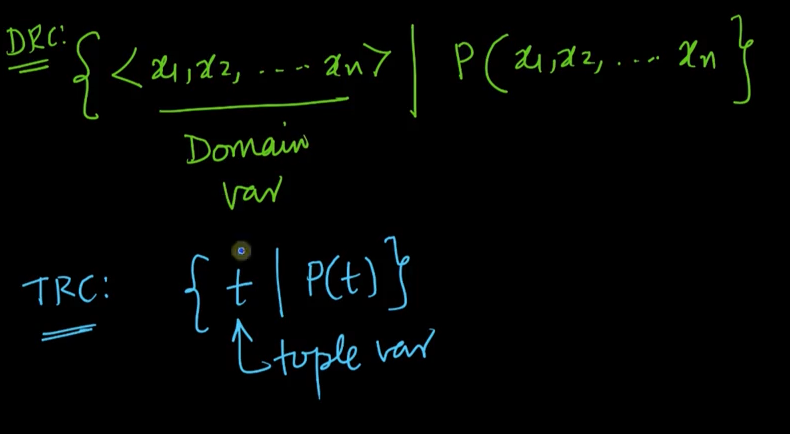 DRC: { < x1, x2, .... xn > | P ( x1, x2, .... xn }
Domain
var
TRC: { t | P(t) }
tuple var